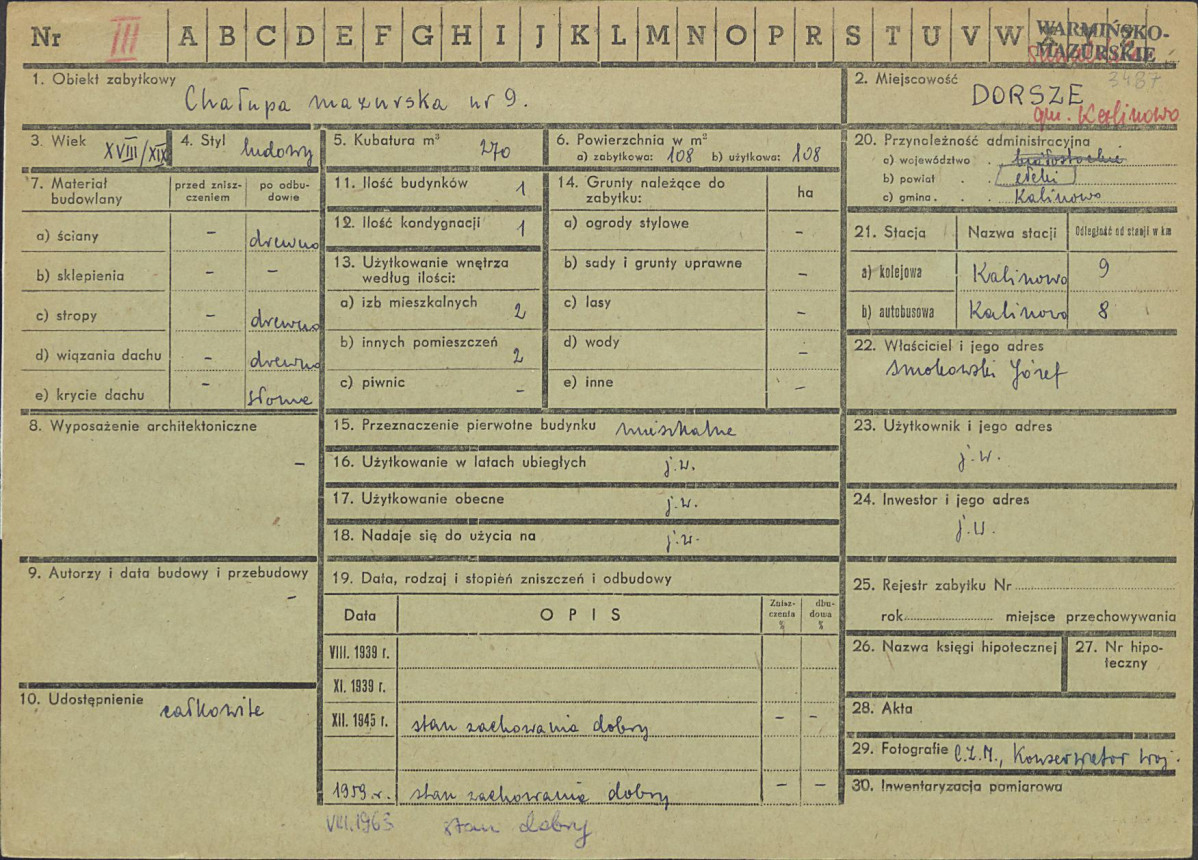 Nr III A B C D E F G H I J K L M N O P R S T U V W
WARMIŃSKO-
MAZURSKIE
1. Obiekt zabytkowy
Chałupa mazurska nr 9.
2. Miejscowość 3487
DORSZE
gm. Kalinowo
3. Wiek XVIII/XIX
4. Styl ludowy
5. Kubatura m³ 270
6. Powierzchnia w m²
a) zabytkowa: 108 b) użytkowa: 108
7. Materiał budowlany
przed znisz-
czeniem
po odbu-
dowie
a) ściany - drewno
b) sklepienia - -
c) stropy - drewno
d) wiązania dachu - drewno
e) krycie dachu - słoma
8. Wyposażenie architektoniczne
-
9. Autorzy i data budowy i przebudowy
-
10. Udostępnienie całkowite
11. Ilość budynków 1
12. Ilość kondygnacji 1
13. Użytkowanie wnętrza
według ilości:
a) izb mieszkalnych 2
b) innych pomieszczeń 2
c) piwnic -
14. Grunty należące do
zabytku: ha
a) ogrody stylowe -
b) sady i grunty uprawne -
c) lasy -
d) wody -
e) inne -
15. Przeznaczenie pierwotne budynku mieszkalne
16. Użytkowanie w latach ubiegłych j.w.
17. Użytkowanie obecne j.w.
18. Nadaje się do użycia na j.w.
19. Data, rodzaj i stopień zniszczeń i odbudowy
Data OPIS
Znisz-
czenia
%
dbu-
dowa
%
VIII. 1939 r.
XI. 1939 r.
XII. 1945 r. stan zachowania dobry - -
1959 r. stan zachowania dobry - -
VIII.1963 stan dobry
20. Przynależność administracyjna
a) województwo . białostockie
b) powiat . . ełcki
c) gmina . . Kalinowo
21. Stacja Nazwa stacji Odległość od stacji w km
a) kolejowa Kalinowo 9
b) autobusowa Kalinowo 8
22. Właściciel i jego adres
Smokowski Józef
23. Użytkownik i jego adres
j.w.
24. Inwestor i jego adres
j.w.
25. Rejestr zabytku Nr
rok miejsce przechowywania
26. Nazwa księgi hipotecznej
27. Nr hipo-
teczny
28. Akta
29. Fotografie C.Z.M., Konserwator Woj.
30. Inwentaryzacja pomiarowa